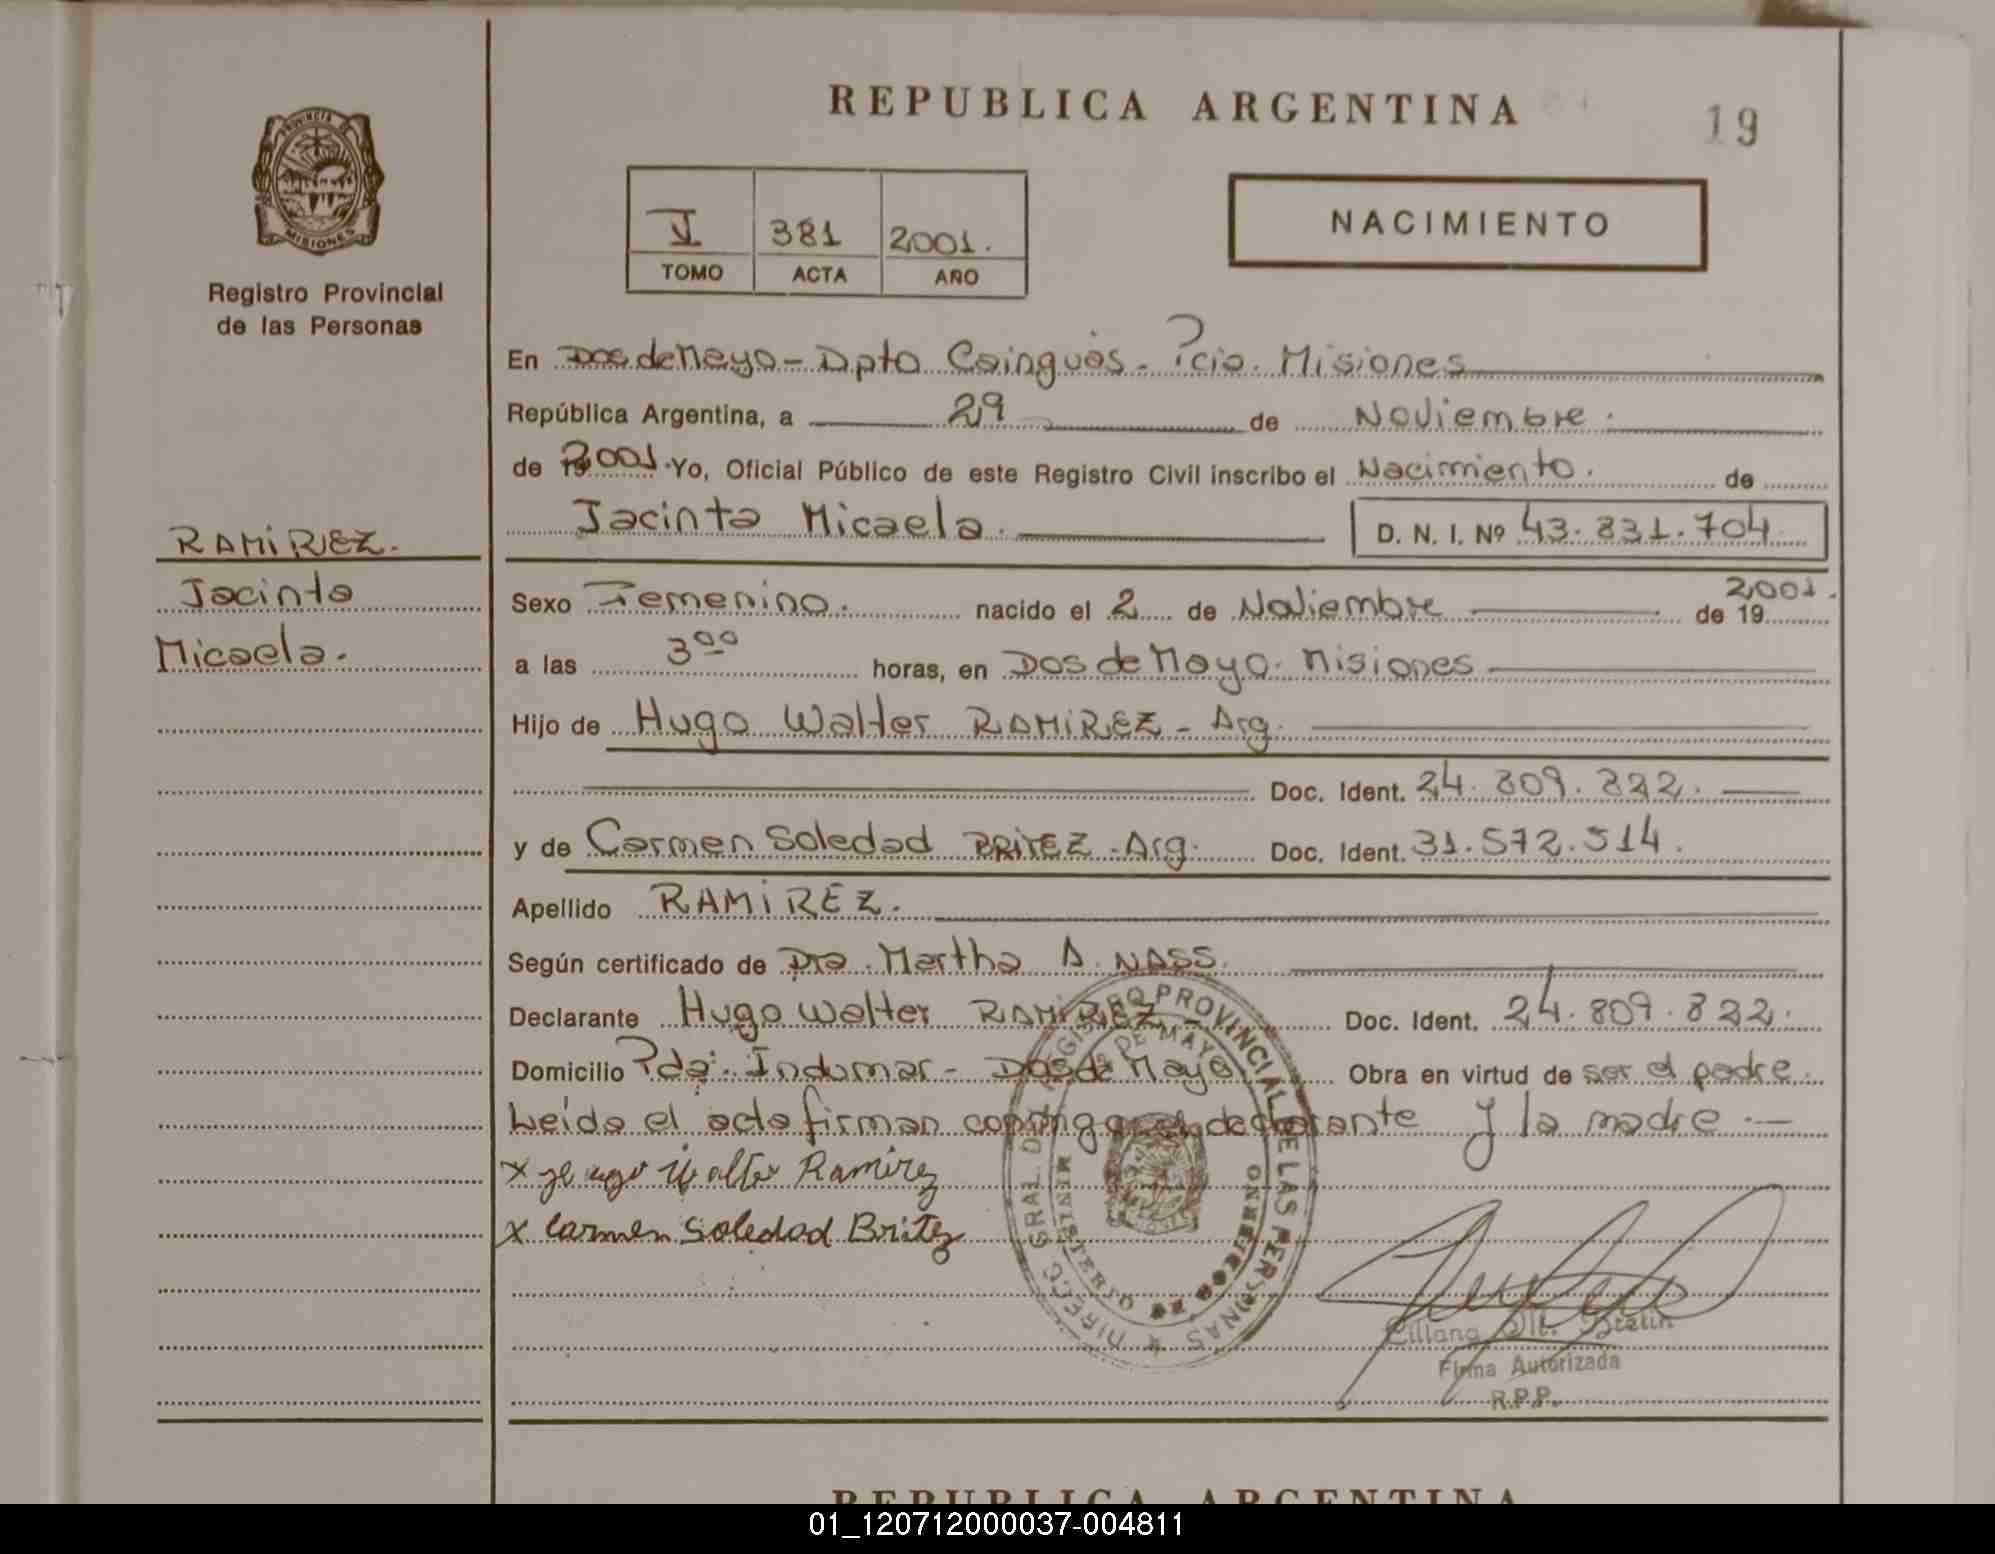 REPUBLICA ARGENTINA
19
PROVINCIA DE
MISIONES
Registro Provincial
de las Personas
I 381 2001.
TOMO ACTA AÑO
NACIMIENTO
En Dos de Mayo - Dpto Cainguás - Pcia. Misiones
República Argentina, a 29 de Noviembre.
de 2001. Yo, Oficial Público de este Registro Civil inscribo el Nacimiento. de
Jacinta Micaela. D. N. I. Nº 43.831.704
RAMIREZ.
Jacinta
Micaela.
Sexo Femenino. nacido el 2 de Noviembre de 19 2001.
a las 3 00 horas, en Dos de Mayo. Misiones
Hijo de Hugo Walter RAMIREZ - Arg.
Doc. Ident. 24.809.822.
y de Carmen Soledad BRITEZ - Arg. Doc. Ident. 31.572.514.
Apellido RAMIREZ.
Según certificado de Dra. Martha A. NASS.
Declarante Hugo Walter RAMIREZ - Doc. Ident. 24.809.822.
Domicilio Pda. Indumar - Dos de Mayo Obra en virtud de ser el padre.
Leída el acta firman conmigo el declarante y la madre.-
x Hugo Walter Ramirez
x Carmen Soledad Britez
DIRECC. GRAL. DEL REGISTRO PROVINCIAL DE LAS PERSONAS
DOS DE MAYO
MISIONES
Firma Autorizada
R.P.P.
REPUBLICA ARGENTINA
01_120712000037-004811